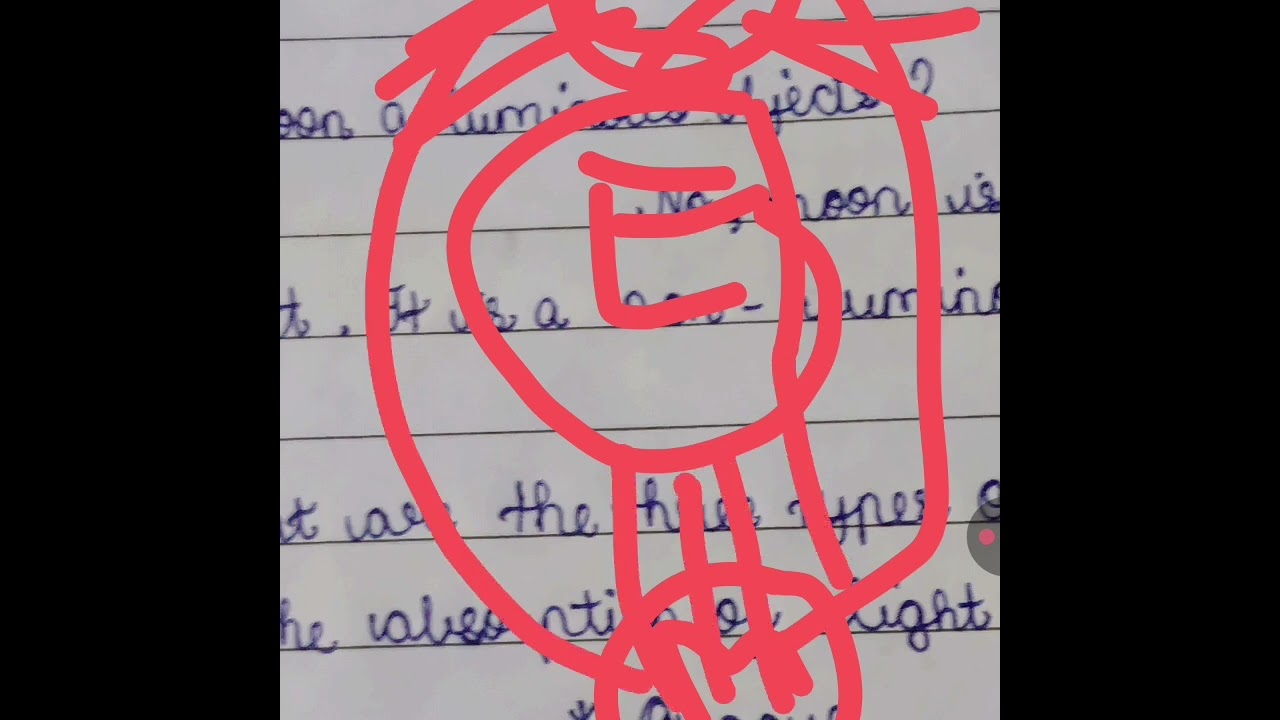 oon a luminous objects?
. No, moon is
t. It is a non-lumino
t are the types
he absorption of light
*